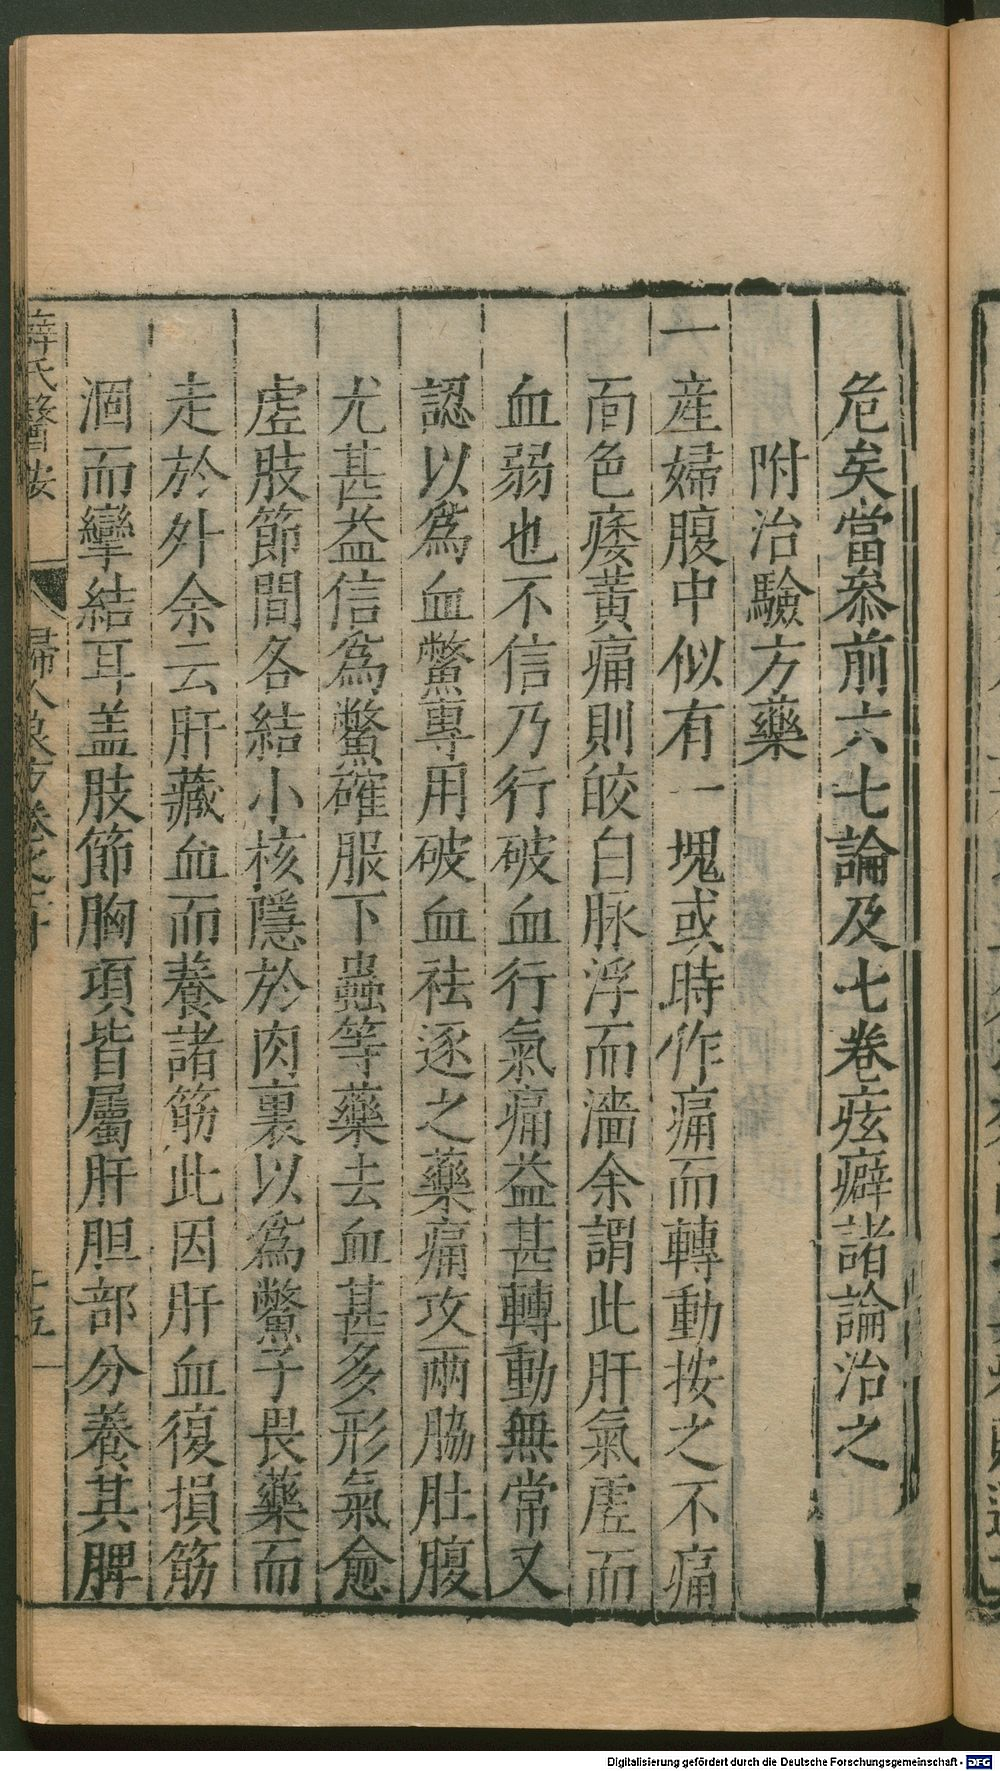 危矣當叅前六七論及七卷痃癖諸論治之
附治驗方藥
一產婦腹中似有一塊或時作痛而轉動按之不痛
面色痿黃痛則皎白脉浮而濇余謂此肝氣虛而
血弱也不信乃行破血行氣痛益甚轉動無常又
認以為血鱉專用破血祛逐之藥痛攻兩脇肚腹
尤甚益信為鱉確服下蟲等藥去血甚多形氣愈
虛肢節間各結小核隱於肉裏以為鱉子畏藥而
走於外余云肝藏血而養諸筋此因肝血復損筋
涸而攣結耳盖肢節胸項皆屬肝胆部分養其脾
薛氏醫按 婦人良方卷之二十 十五
Digitalisierung gefördert durch die Deutsche Forschungsgemeinschaft - DFG